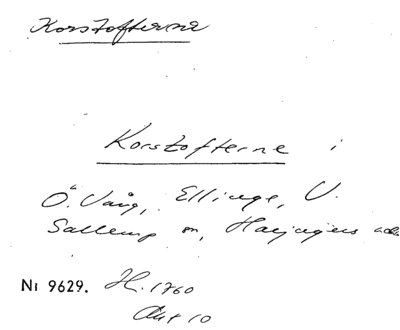 Korstofterne
Korstofterne i
Ö. Vång, Ellinge, V.
Sallerup sn, Harjagers
Nr 9629. H. 1760
Akt 10